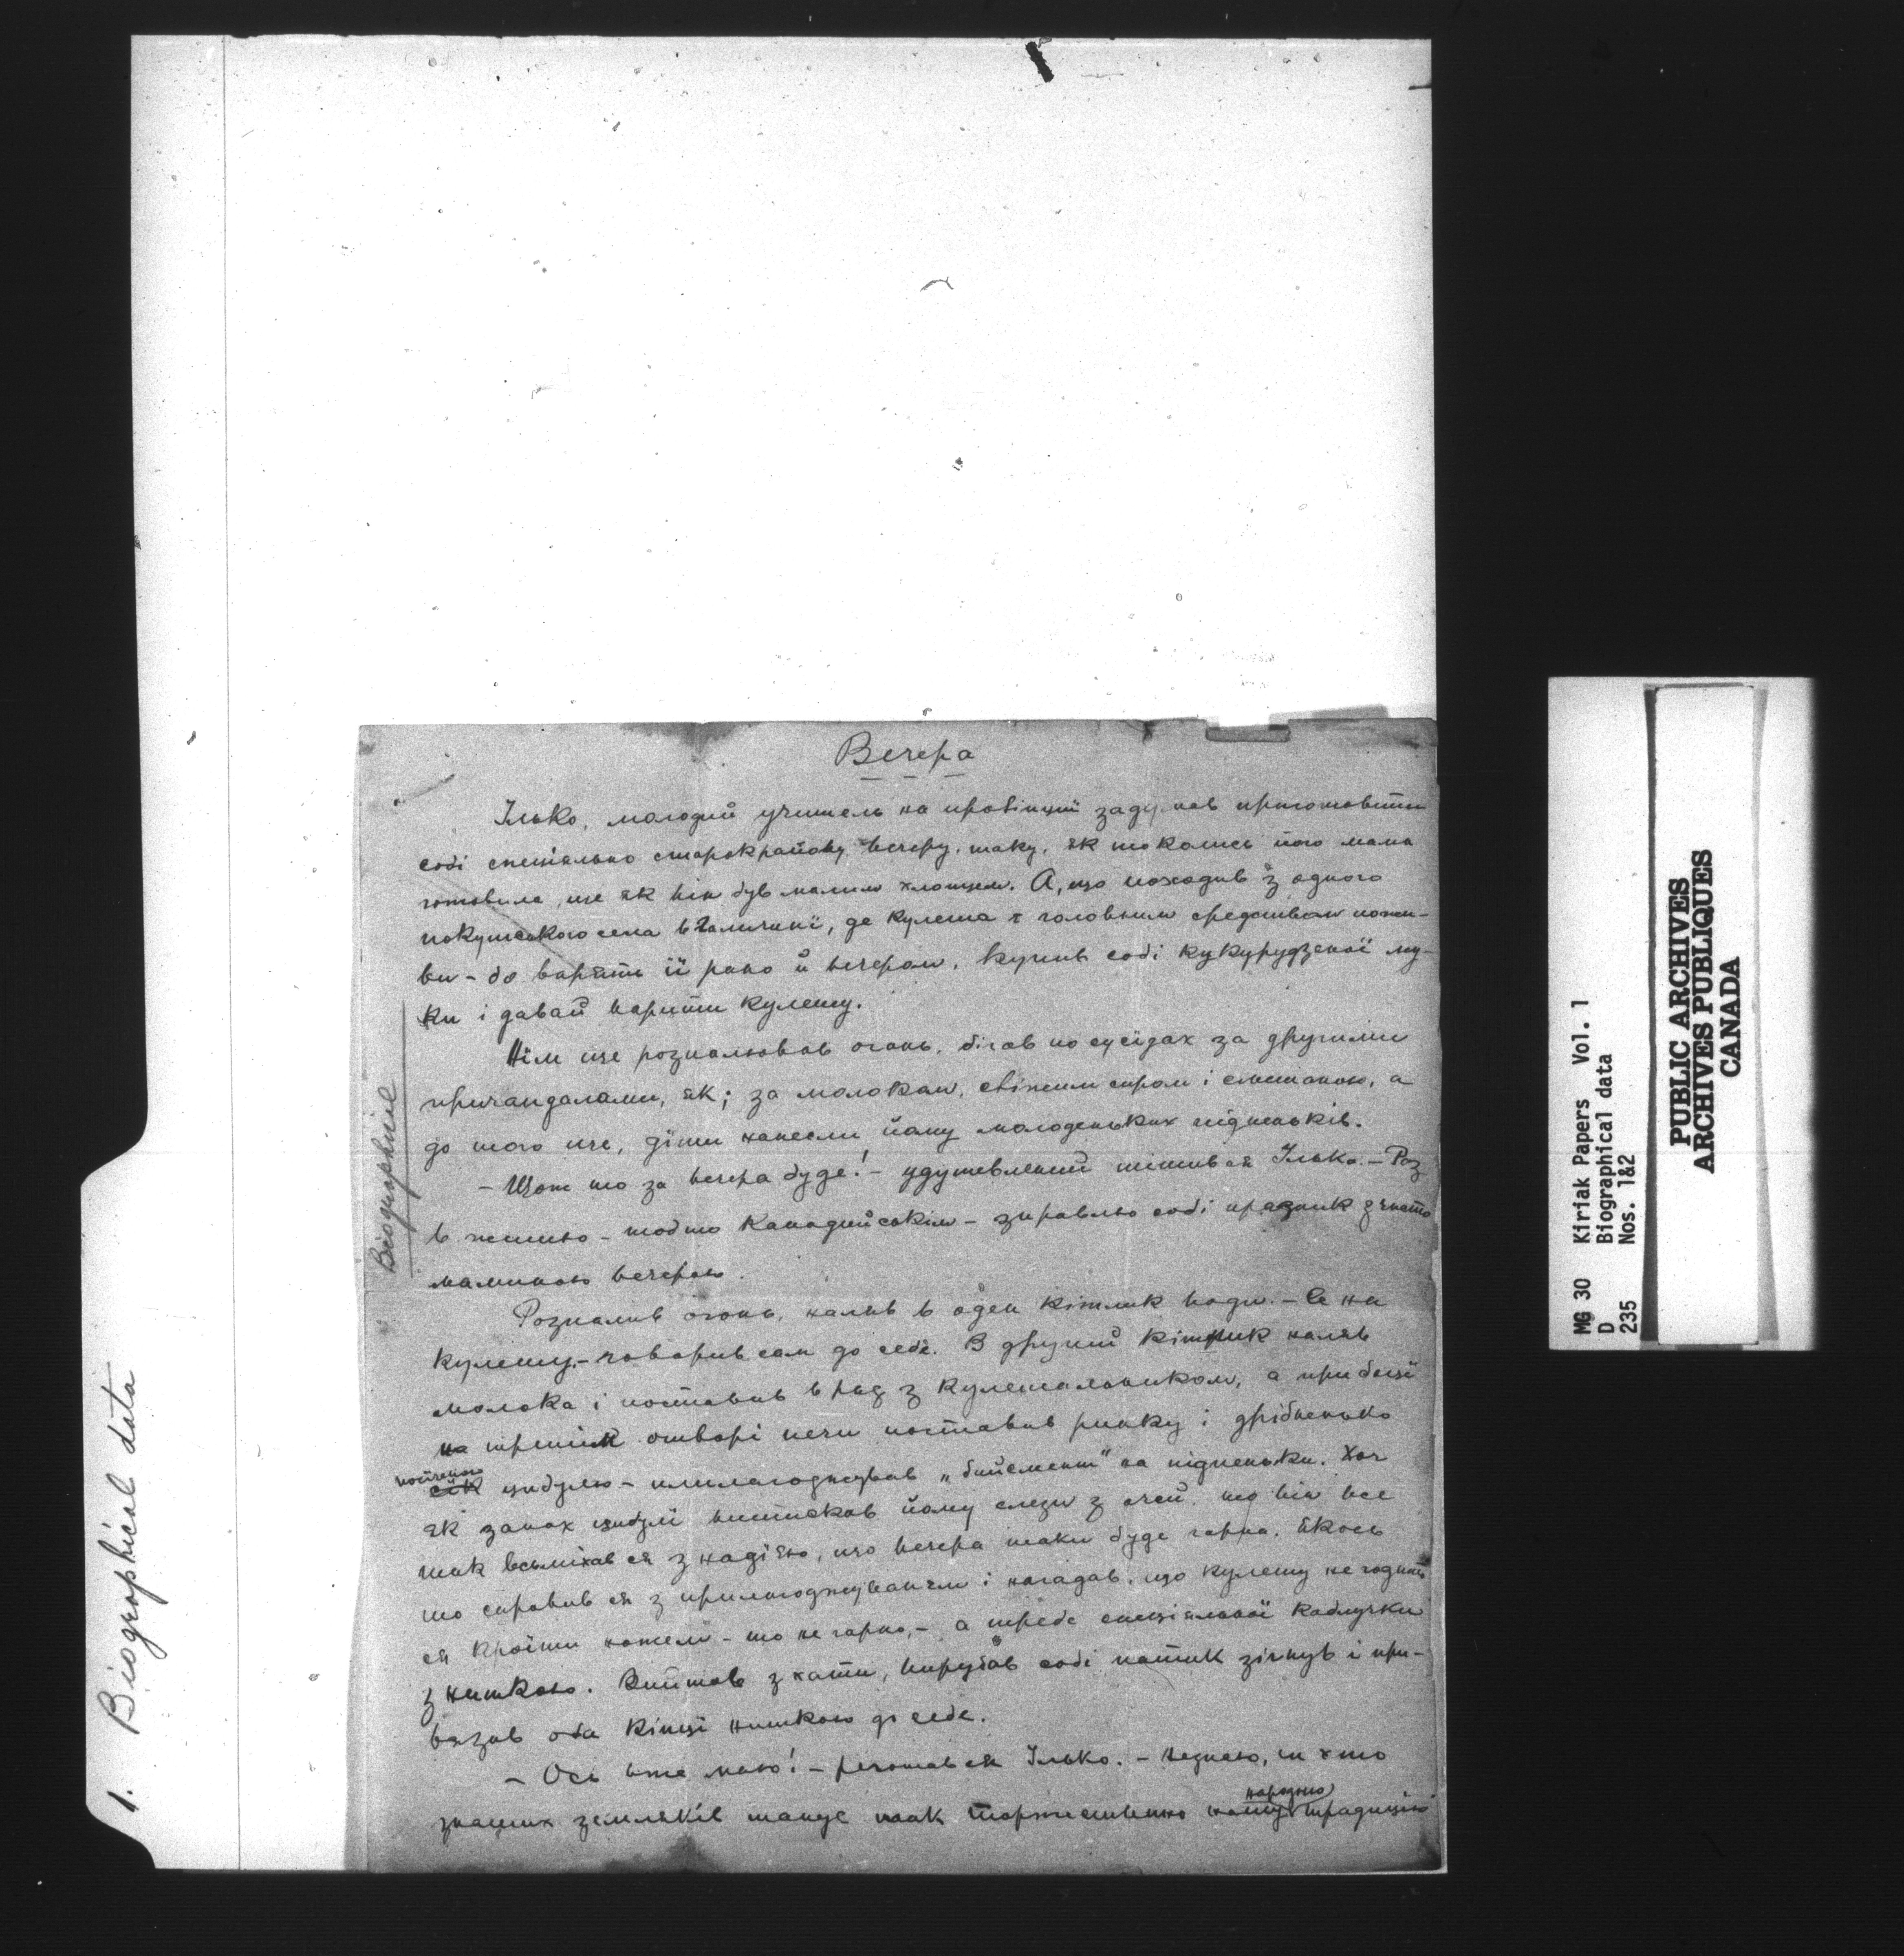 Вечера
Ілько, молодий учитель на провінциї задумав приготовити
собі спеціяльно старокрайову вечеру, таку, як то колись його мама
готовила, ще як він був малим хлопцем. А, що походив з одного
покутського села в Галичині, де кулеша є головним средством пожи-
ви - бо варять її рано й вечером, купив собі кукурудзяної му-
ки і давай варити кулешу.
Нім ще розпалював огонь, бігав по сусїдах за другими
причандалами, як; за молоком, свіжим сиром і сметаною, а
до того ще, дїти нанесли йому молоденьких підпеньків.
- Щож то за вечера буде! - удушевлений тїшив ся Ілько. - Раз
в житю - тобто Канадийськім - зправлю собі празник з
маминою вечерою.
Розпалив огонь, налив в оден кітлик води. - Се на
кулешу, - говорив сам до себе. В другий кітлик наляв
молока і поставив в ряд з кулешальником, а при боцї
на третїй отворі печи поставив ринку і дрібненько
сїк цибулю - прилагоджував „бийсмент" на підпеньки. Хоч
як запах цибулї витискав йому слези з очей, то він все
так всьміхав ся з надїєю, що вечера таки буде гарна. Якось
то справив ся з прилагоджуванєм і нагадав, що кулешу не годить
ся кроїти ножем - то не гарно, - а треба спеціяльної каблучки
з ниткою. Вийшов з хати, вирубав собі патик зігнув і при-
вязав оба кінцї ниткою до себе.
- Ось вже маю! - реготав ся Ілько. - Незнаю, чи хто
з наших земляків шанує так торжественно нашу народню традицію
Biographical
1. Biographical data
MG 30 Kiriak Papers Vol. 1
D Biographical data
235 Nos. 1&2
PUBLIC ARCHIVES
ARCHIVES PUBLIQUES
CANADA